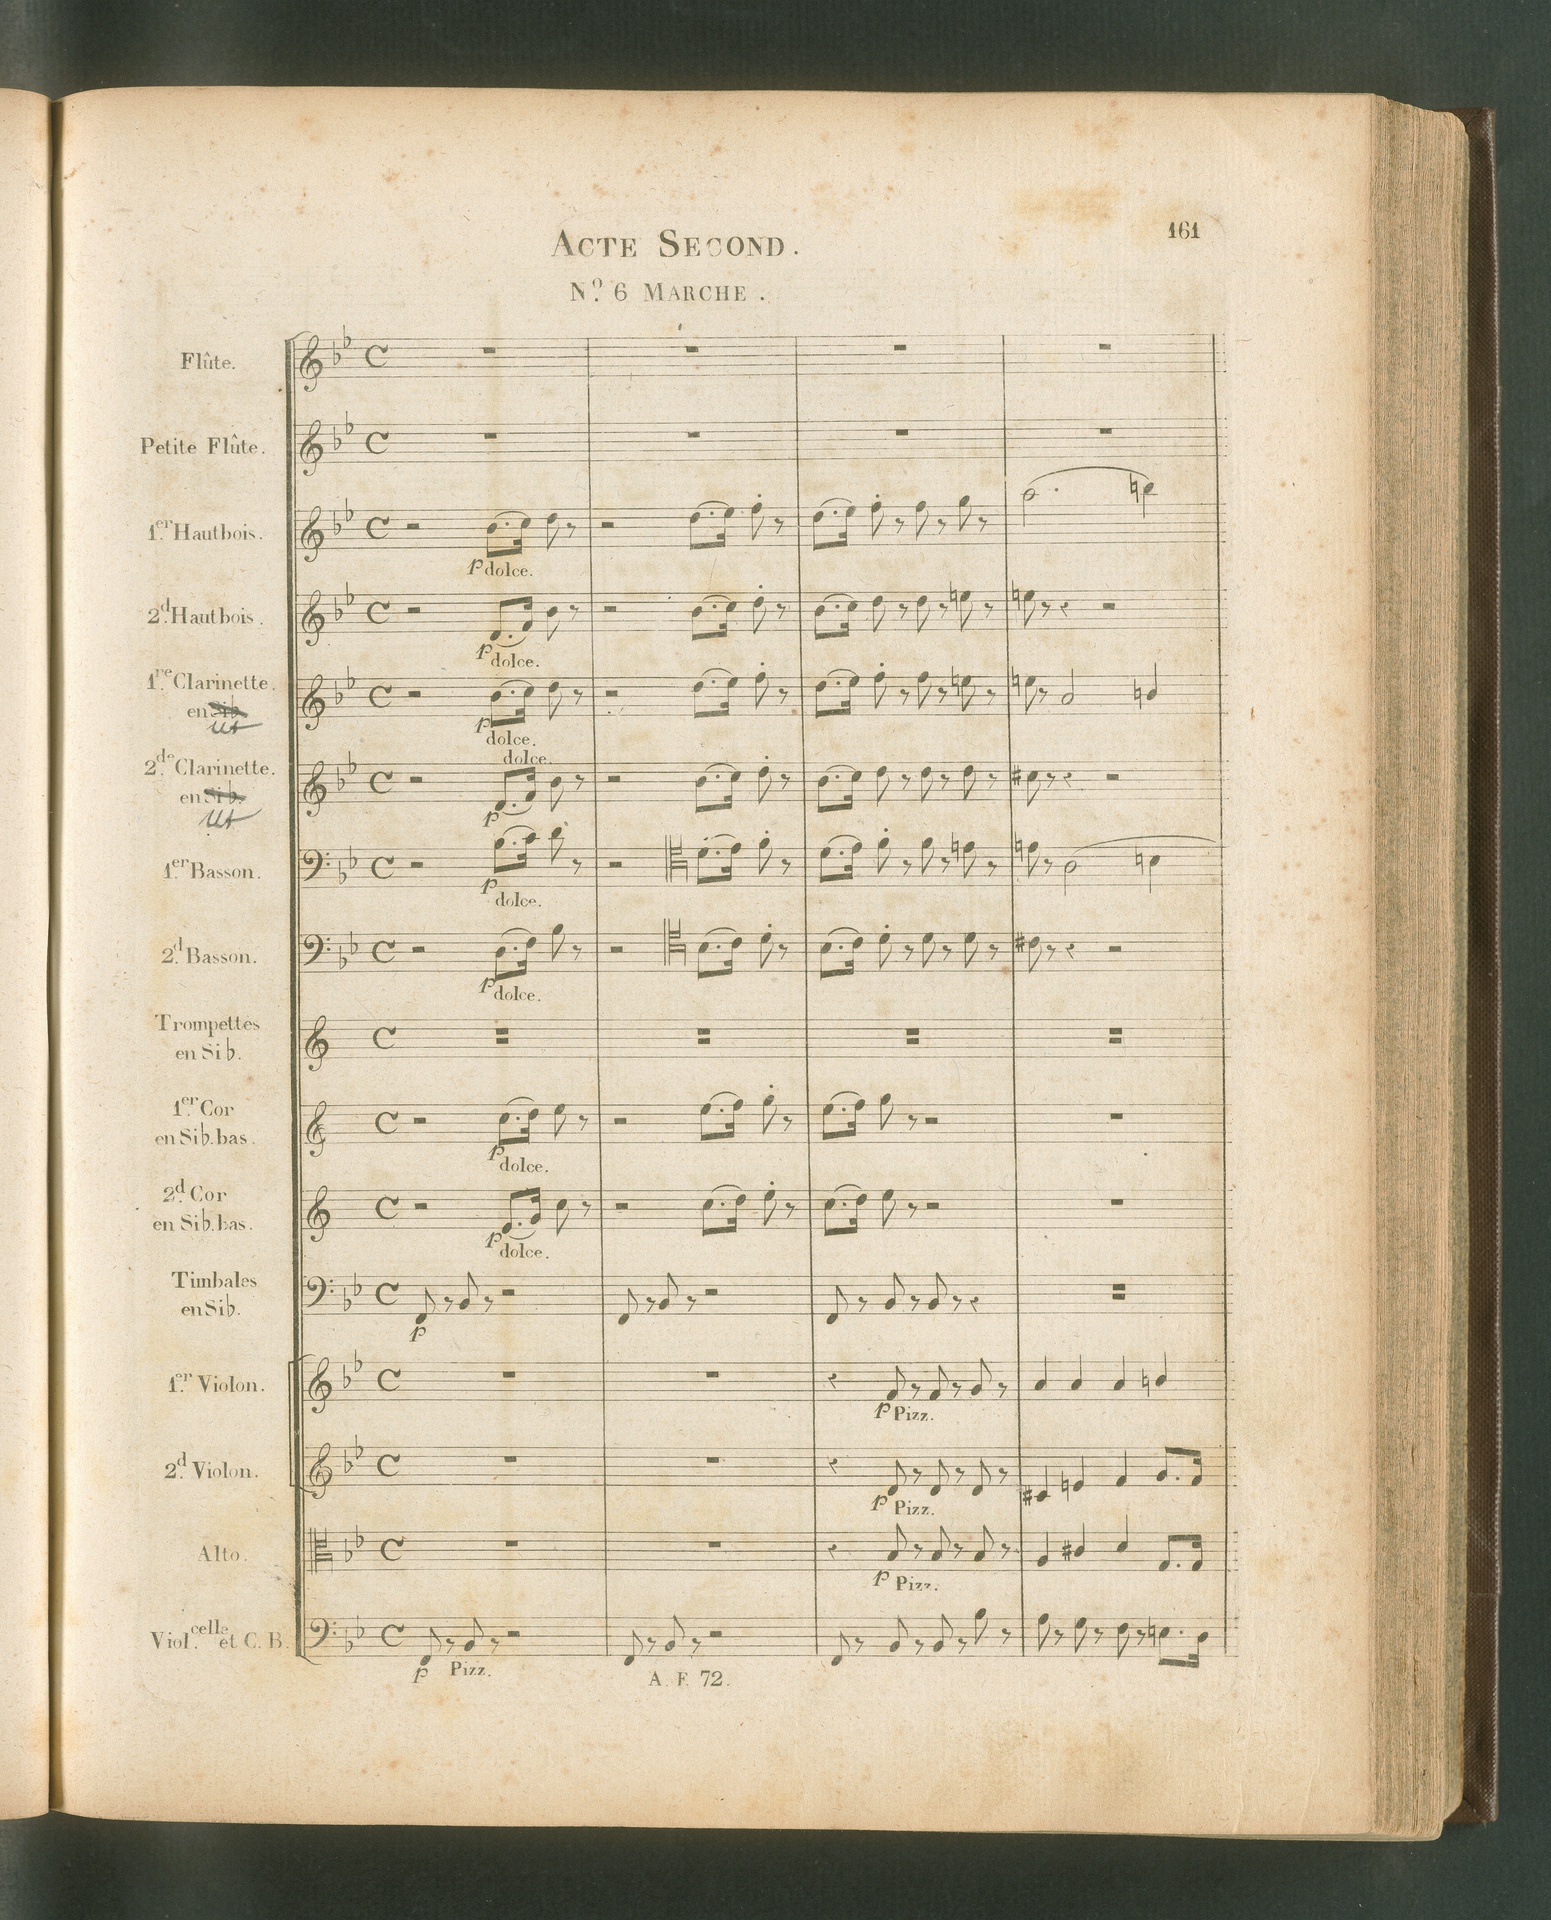 161
ACTE SECOND.
Nº. 6 MARCHE.
Flûte.
Petite Flûte.
1.er Hautbois.
p dolce.
2.d Hautbois.
p dolce.
1.re Clarinette.
en Sib.
ut
p dolce.
2.de Clarinette.
en Sib.
ut
dolce.
p
1.er Basson.
p dolce.
2.d Basson.
p dolce.
Trompettes
en Sib.
1.er Cor
en Sib. bas.
p dolce.
2.d Cor
en Sib. bas.
p dolce.
Timbales
en Sib.
p
1.er Violon.
p Pizz.
2.d Violon.
p Pizz.
Alto.
p Pizz.
Viol.celle et C. B.
p Pizz.
A. F. 72.